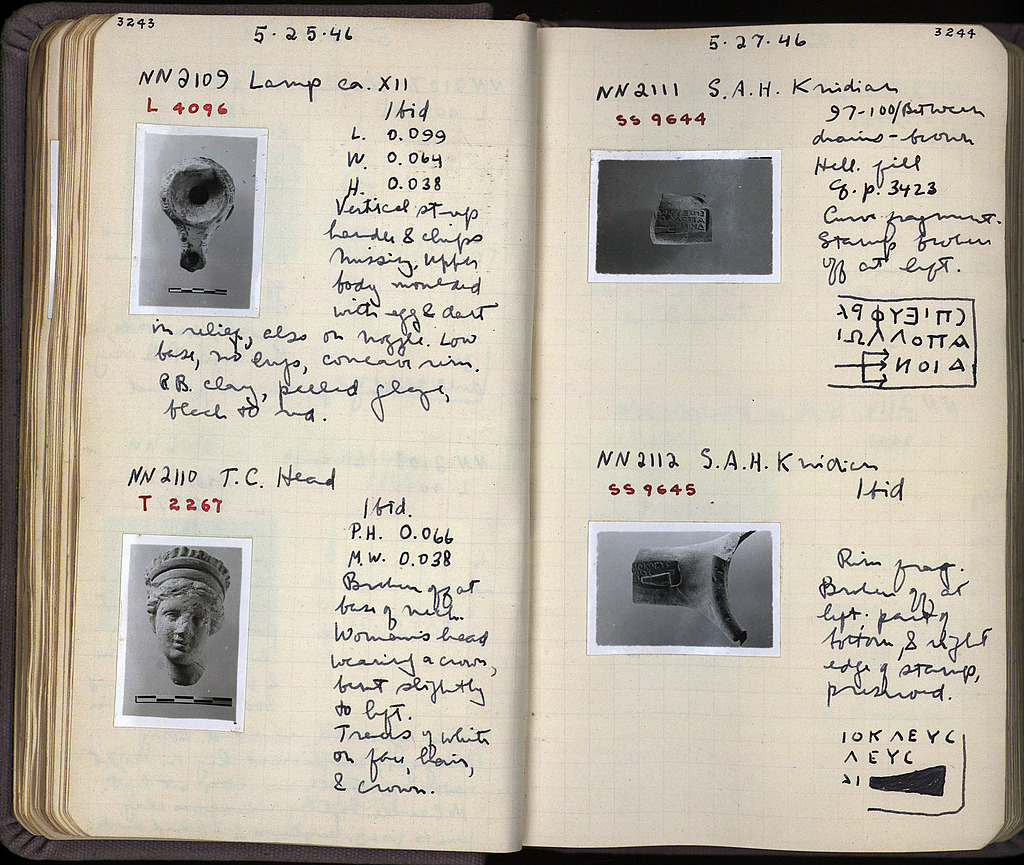 3243
5·25·46
NN2109 Lamp ca. XII
L 4096
Ibid
L. 0.099
W. 0.064
H. 0.038
Vertical strap
handle & chips
missing, upper
body moulded
with egg & dart
in relief, also on nozzle. Low
base, no lugs, concave rim.
B.B. clay, peeled glaze,
black to red.
NN2110 T.C. Head
T 2267
Ibid.
P.H. 0.066
M.W. 0.038
Broken off at
base of neck.
Women's head
wearing a crown,
bent slightly
to left.
Traces of white
on face, hair,
& crown.
3244
5·27·46
NN2111 S.A.H. Knidian
SS 9644
97-100/Between
drains-brown
Hell. fill
q.p. 3423
Curve fragment.
Stamp broken
off at left.
NN2112 S.A.H. Knidian
SS 9645
Ibid
Rim frag.
Broken off at
left. part of
bottom, & right
edge of stamp,
preserved.
ΙΟΚΛΕΥC
ΛΕΥC